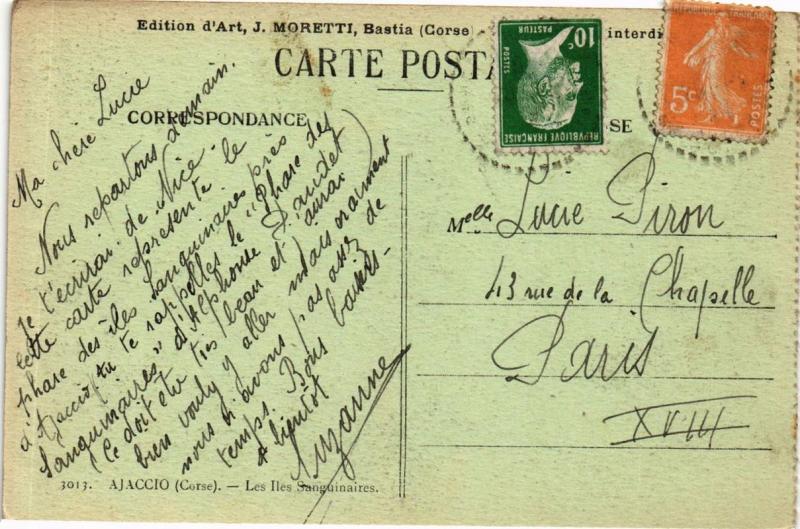 Edition d'Art, J. MORETTI, Bastia (Corse) - interdi
CARTE POSTA
CORRESPONDANCE
SE
10c
PASTEUR
POSTES
REPUBLIQUE FRANÇAISE
5c
POSTES
Ma chère Lucie
Nous repartons demain.
Je t'écrirai de Nice.
Cette carte représente le
phare des îles Sanguinaires près
d'Ajaccio (tu te rappelles le "Phare des
Sanguinaires" d'Alphonse Daudet)
Ce doit être très beau et j'aurai
bien voulu y aller mais vraiment
nous n'avons pas assez de
temps. Bons baisers -
A bientôt
Suzanne
Melle Lucie Piron
43 rue de la Chapelle
Paris
XVIII
3013. AJACCIO (Corse). — Les Iles Sanguinaires.